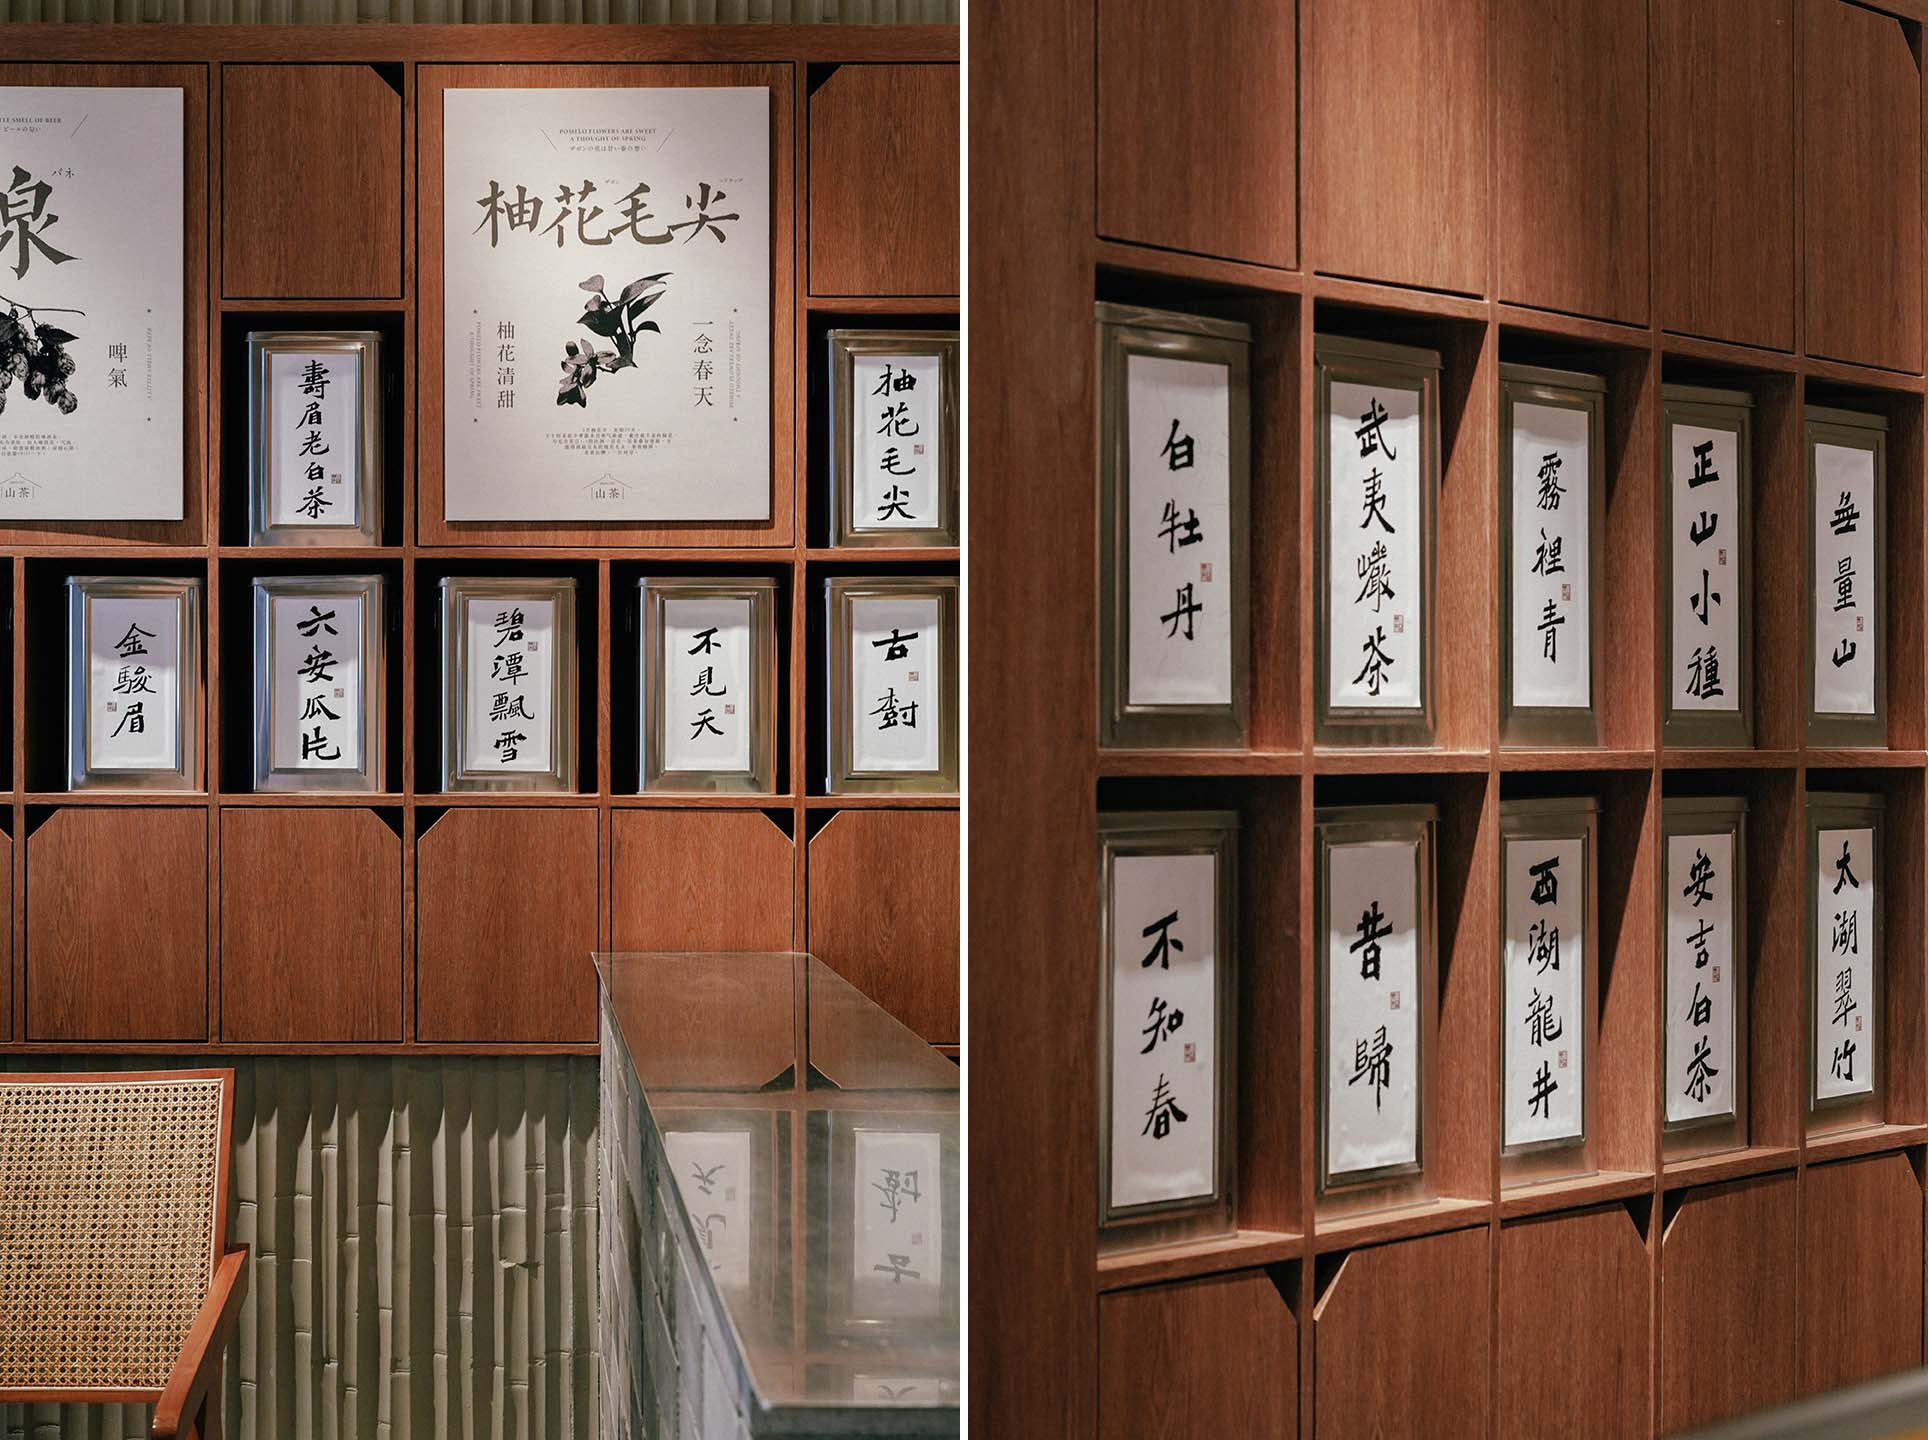 泉
パネ
啤氣
山茶
POMELO FLOWERS ARE SWEET
A THOUGHT OF SPRING
ザボンの花は甘い春の想い
ザボン
柚花毛尖
柚花清甜
一念春天
POMELO FLOWERS ARE SWEET
A THOUGHT OF SPRING
山茶
壽眉老白茶
柚花毛尖
金駿眉
六安瓜片
碧潭飄雪
不見天
古樹
白牡丹
武夷巖茶
霧裡青
正山小種
無量山
不知春
昔歸
西湖龍井
安吉白茶
太湖翠竹